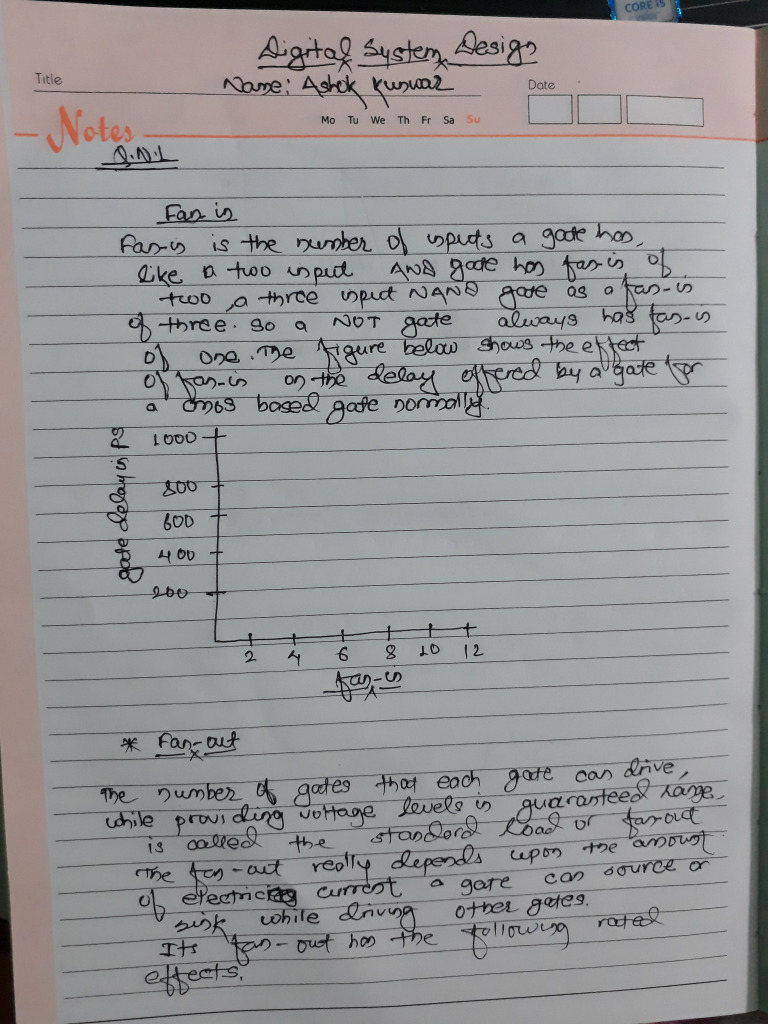 CORE i5
Digital System Design
Title
Name: Ashok Kunwar
Date
Mo Tu We Th Fr Sa Su
Notes
Q.N.1
Fan in
Fan-in is the number of inputs a gate has,
like a two input AND gate has fan-in of
two, a three input NAND gate as a fan-in
of three. so a NOT gate always has fan-in
of one. The figure below shows the effect
of fan-in on the delay offered by a gate for
a cmos based gate normally.
gate delay in ps
1000
800
600
400
200
2 4 6 8 10 12
fan-in
* Fan-out
The number of gates that each gate can drive,
while providing voltage levels in guaranteed range,
is called the standard load or fan-out
The fan-out really depends upon the amount
of electric current a gate can source or
sink while driving other gates.
Its fan-out has the following rated
effects.